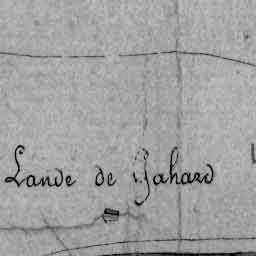 Lande de Gahard